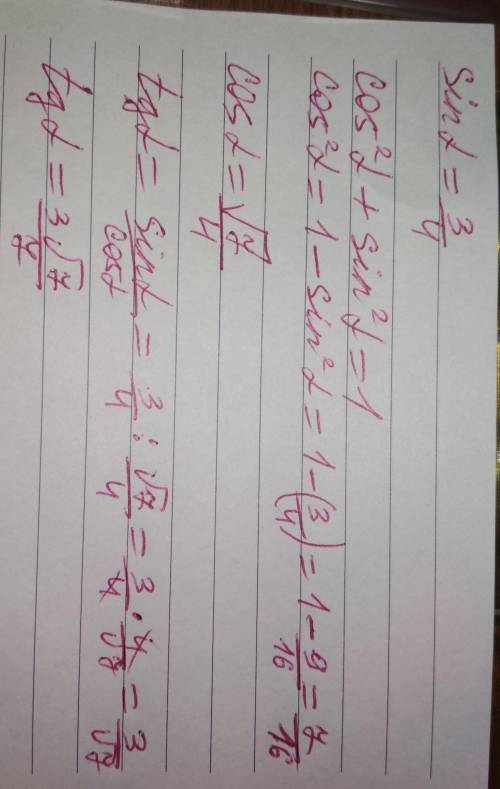 sinα = 3/4
cos²α + sin²α = 1
cos²α = 1 - sin²α = 1 - (3/4) = 1 - 9/16 = 7/16
cosα = √7/4
tgα = sinα/cosα = 3/4 : √7/4 = 3/4 · 4/√7 = 3/√7
tgα = 3√7/7